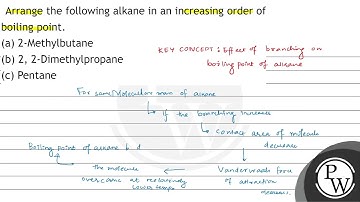 Arrange the following alkane in an increasing order of
boiling point.
(a) 2-Methylbutane
(b) 2, 2-Dimethylpropane
(c) Pentane
KEY CONCEPT : Effect of branching on
boiling point of alkane
For same Molecular mass of alkane
if the branching increases
contact area of molecule
decrease
Vanderwaals force
of attraction
decrease
the molecule
overcome at relatively
lower temp
Boiling point of alkane ↓
PW